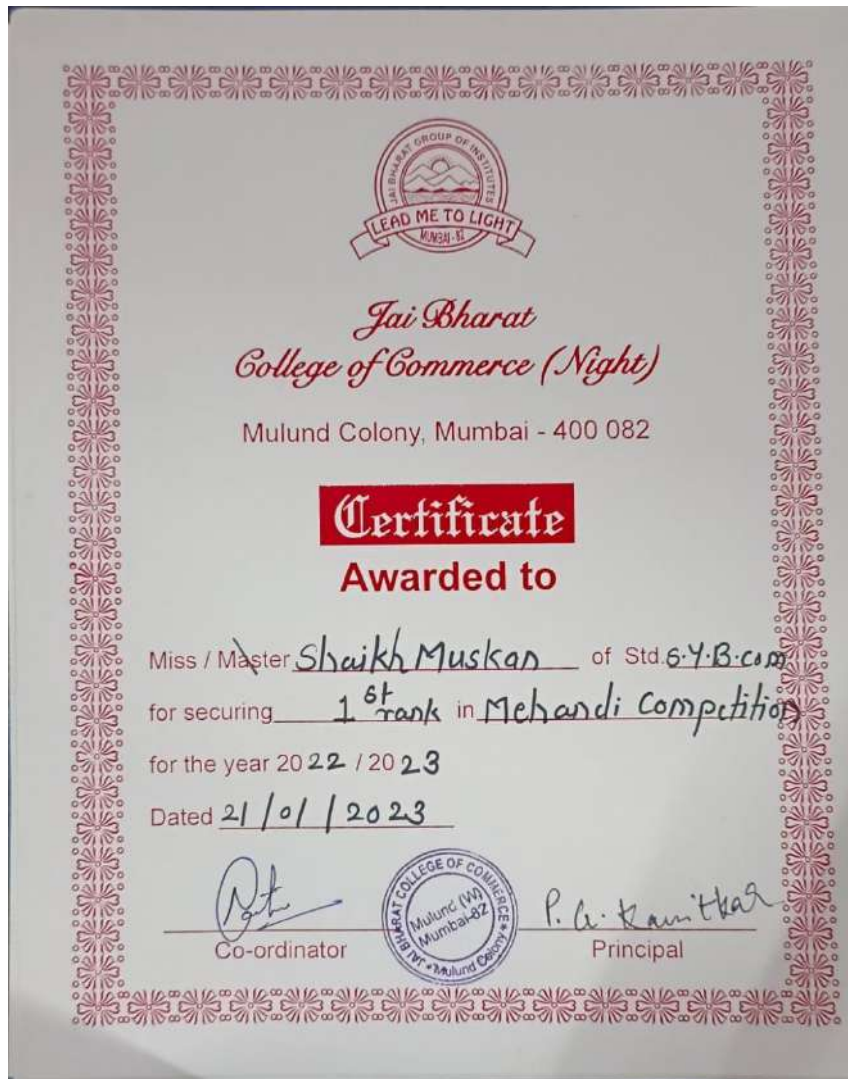 JAI BHARAT GROUP OF INSTITUTES
LEAD ME TO LIGHT
MUMBAI - 82
Jai Bharat
College of Commerce (Night)
Mulund Colony, Mumbai - 400 082
Certificate
Awarded to
Miss / Master Shaikh Muskan of Std. S.Y.B.com
for securing 1st rank in Mehandi Competition
for the year 2022 / 2023
Dated 21/01/2023
JAI BHARAT COLLEGE OF COMMERCE
Mulund (W)
Mumbai-82
Mulund Colony
P. G. Kanitkar
Co-ordinator
Principal